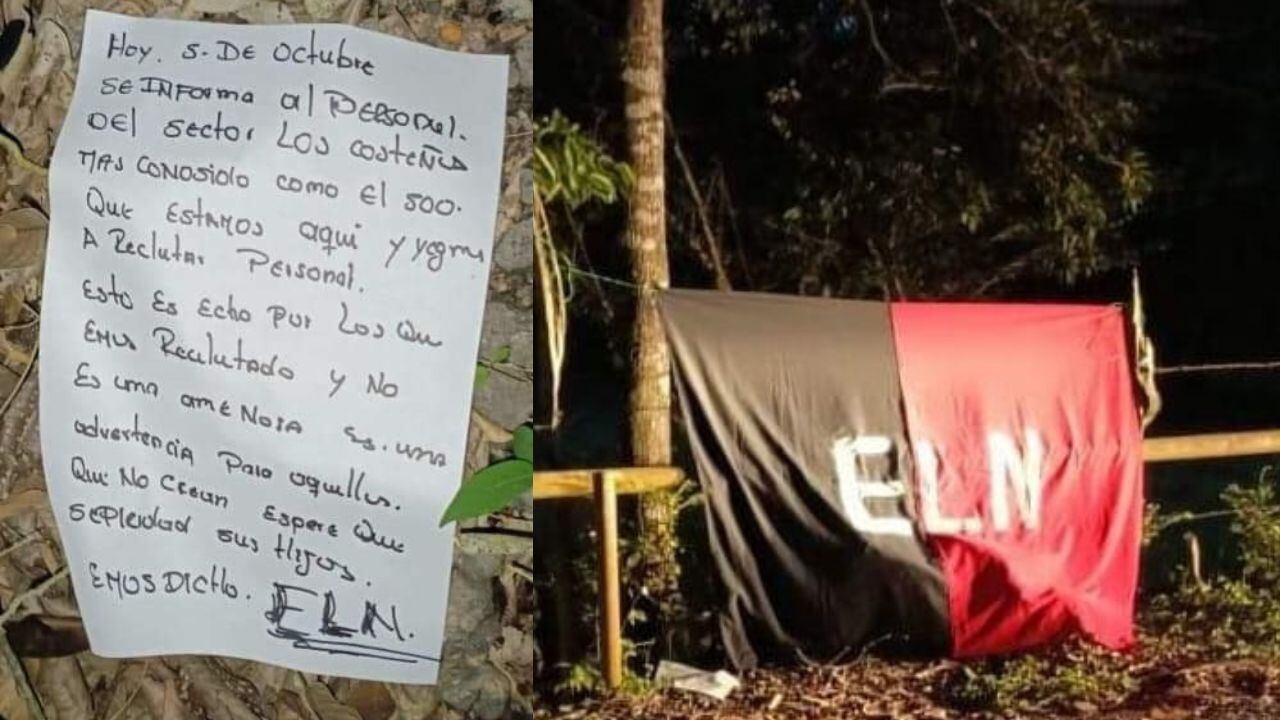 Hoy. 5. DE Octubre
SE INFORMA al PERSONAL.
DEl sector LOS COSTEÑOS
MAS CONOSIDO COMO El 500.
Que ESTAMOS aqui y
A Reclutar Personal.
Esto Es Echo Por Los Que
EMOS Reclutado y No
Es una AMENASA Es. una
advertencia Para aquellos.
Que No Crean Espere Que
sus Hijos.
EMOS DICHO. ELN.
ELN